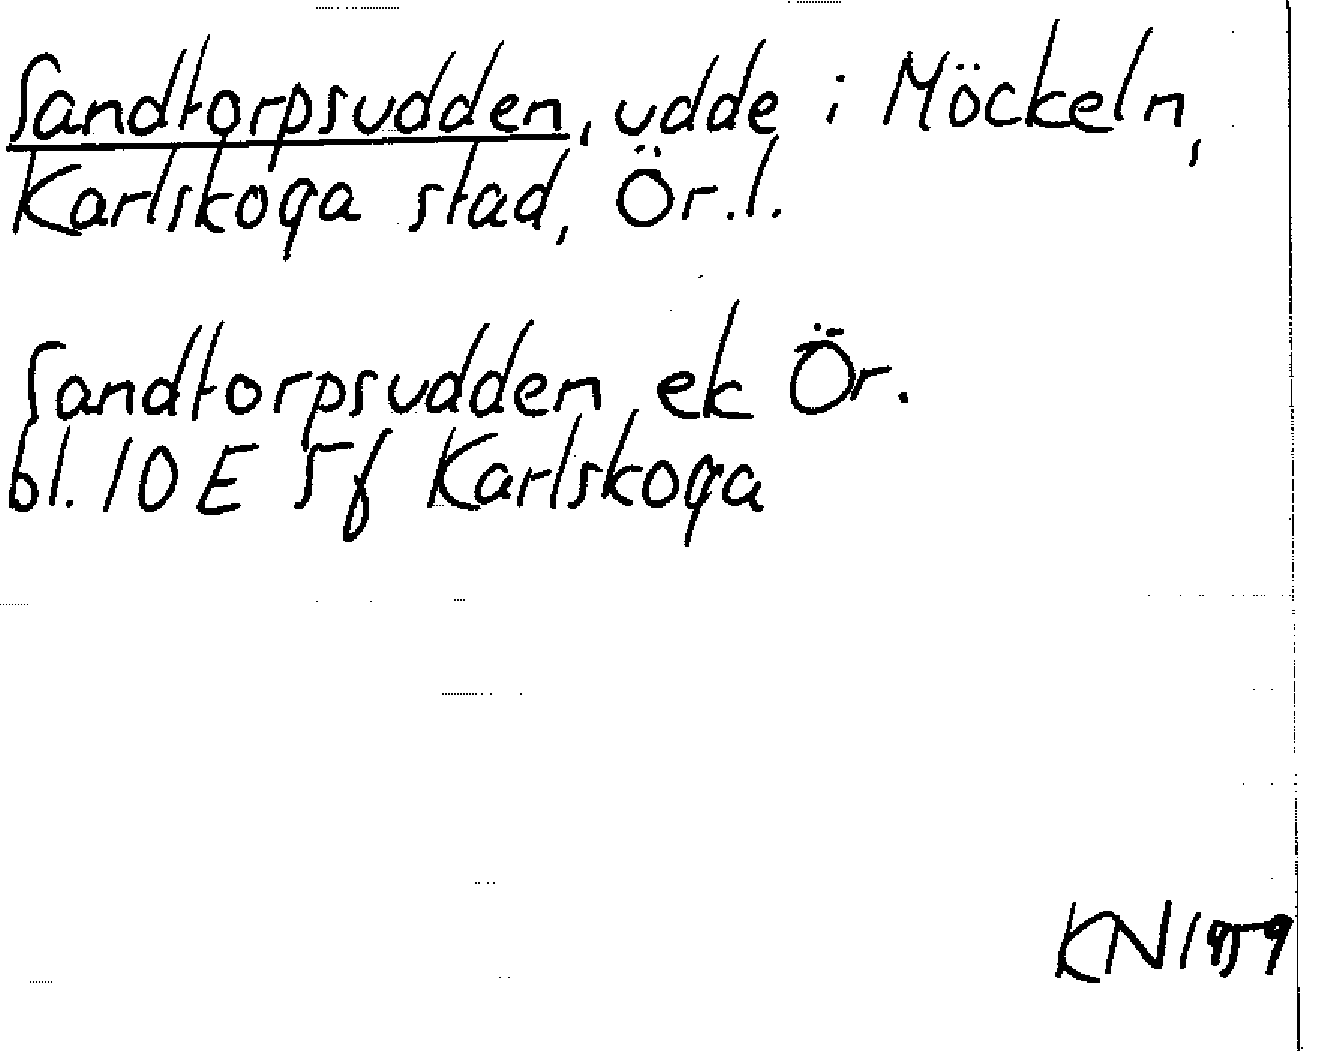 Sandtorpsudden, udde i Möckeln,
Karlskoga stad, Ör.l.
Sandtorpsudden ek Ör.
bl. 10 E 5f Karlskoga
KN 1959